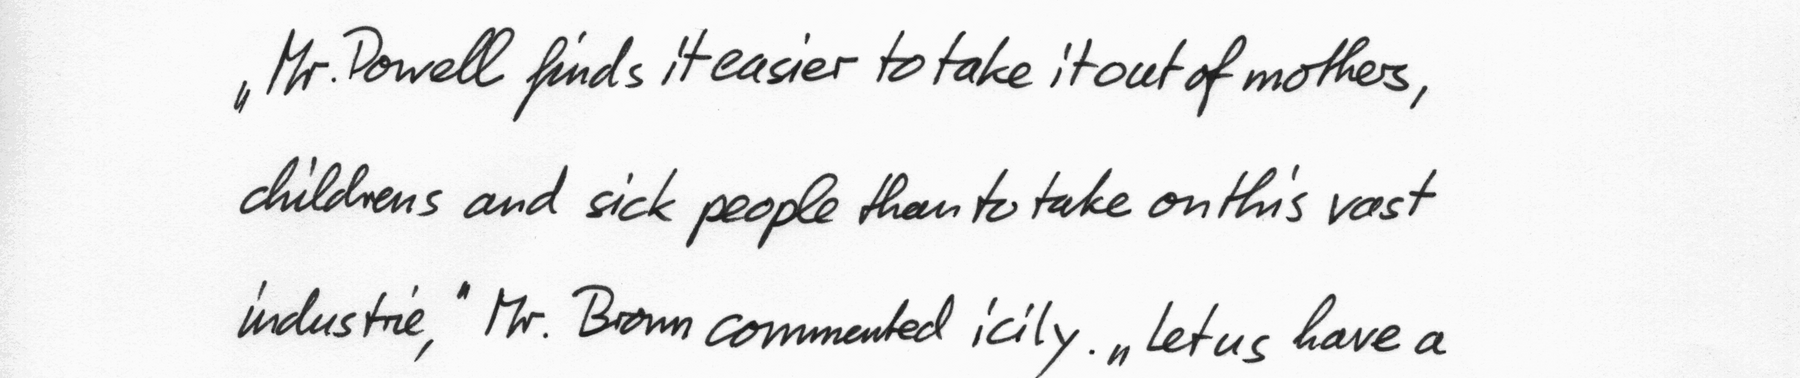 „Mr. Powell finds it easier to take it out of mothers,
childrens and sick people than to take on this vast
industrie," Mr. Brown commented icily. „Let us have a